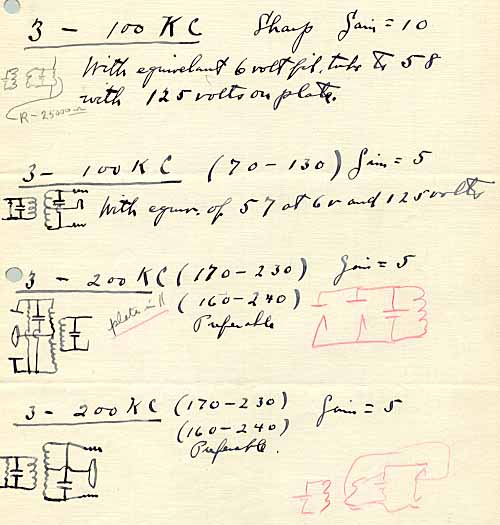 3 - 100 KC Sharp Gain = 10
With equivelant 6 volt fil. tube to 58
with 125 volts on plate.
R - 25000 ω
3 - 100 KC (70 - 130) Gain = 5
With equiv. of 57 at 6 v and 125 volts
3 - 200 KC (170 - 230) Gain = 5
(160 - 240)
Preferable
plate in 11
3 - 200 KC (170 - 230) Gain = 5
(160 - 240)
Preferable.